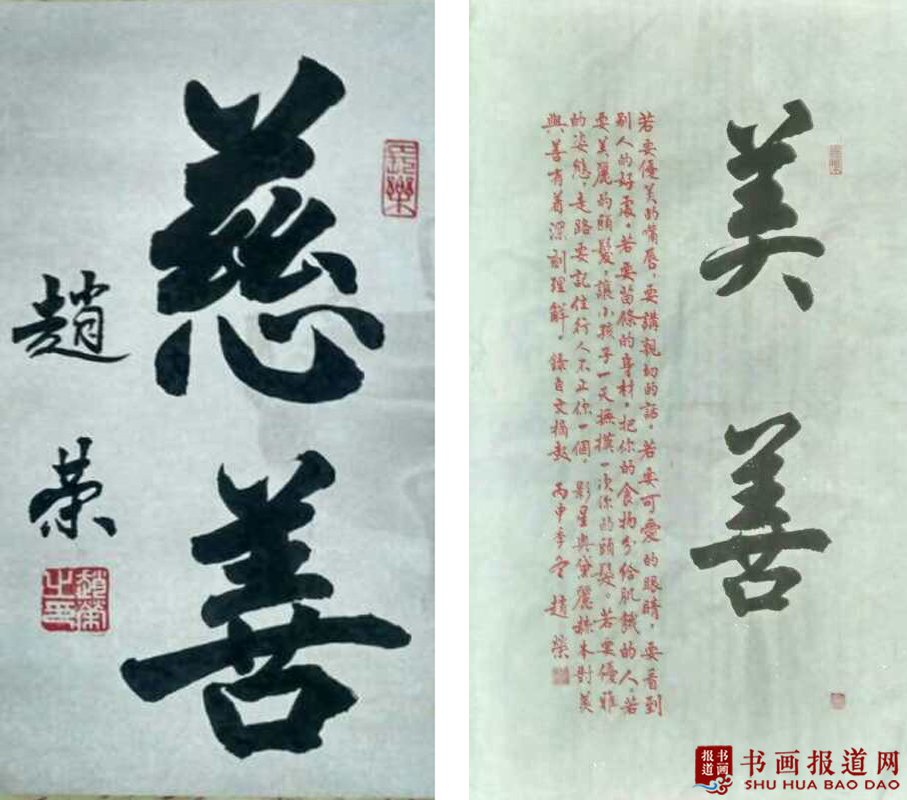 慈善
趙榮
趙榮之印
美善
若要優美的嘴唇，要講親切的話。若要可愛的眼睛，要看到
别人的好處。若要苗條的身材，把你的食物分给肌餓的人。若
要美麗的頭髮，讓小孩子一天撫摸一次你的頭髮。若要優雅
的姿態，走路要記住行人不止你一個。影星奥黛麗赫本對美
與善有着深刻理解。錄自文摘報 丙申季冬 趙榮
书画报道
书画报道网
SHU HUA BAO DAO